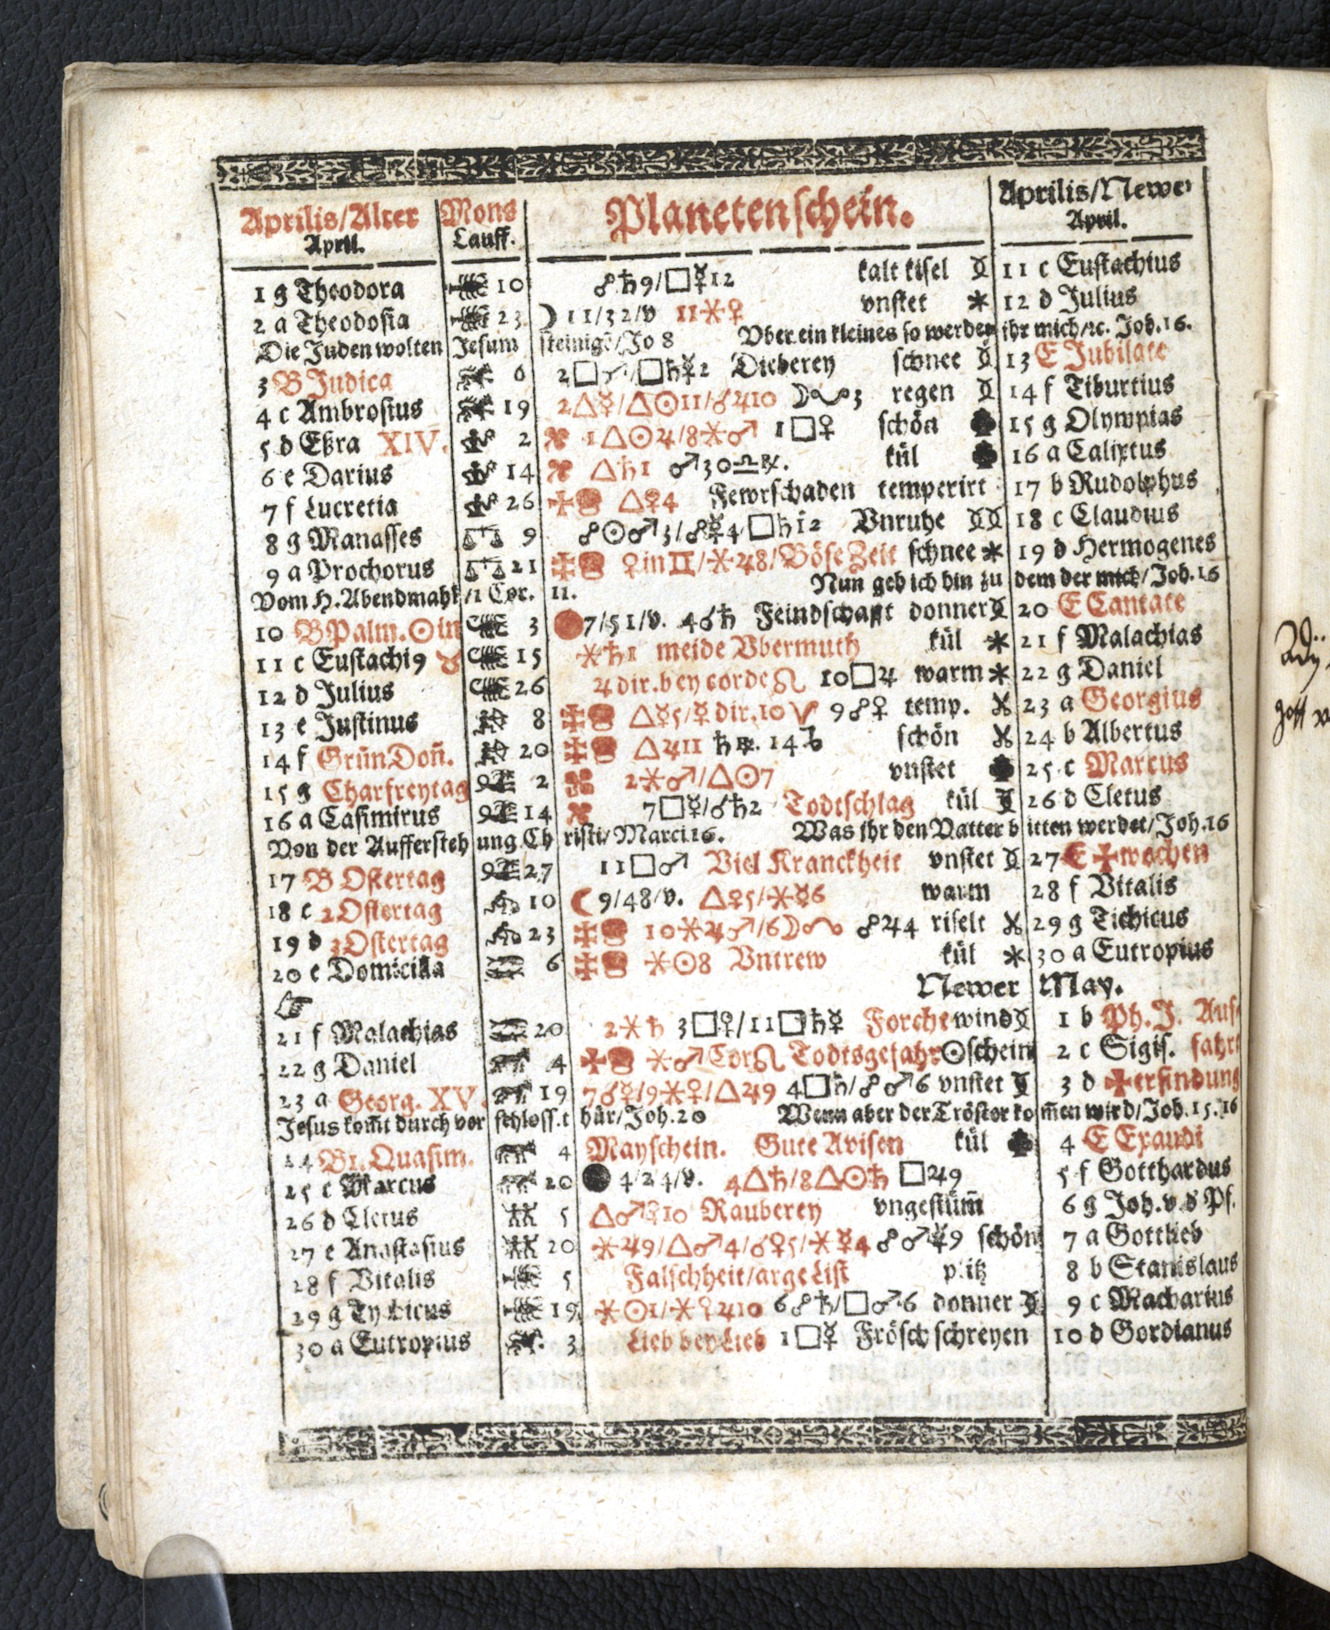 Aprilis/Alter Mons Planetenschein. Aprilis/Newer
April. Lauff. April.
1 g Theodora 10 ☍♄9/□☿12 kalt kisel 11 c Eustachius
2 a Theodosia 23 ☽ 11/32/v 11⚹♀ vnstet ⚹ 12 d Julius
Die Juden wolten Jesum steinigē/Jo 8 Vber ein kleines so werden ihr mich/ꝛc. Joh.16.
3 B Judica 6 □♄☿2 Dieberey schnee 13 E Jubilate
4 c Ambrosius 19 2△☿/△☉11/☌♃10 ☽ 3 regen 14 f Tiburtius
5 d Eßra XIV. 2 1△☉♃/8⚹♂ 1□♀ schön 15 g Olympias
6 e Darius 14 △♄1 ♂30♎℞. kül 16 a Calixtus
7 f Lucretia 26 △♀4 Fewrschaden temperirt 17 b Rudolphus
8 g Manasses 9 ☍☉♂3/☍☿4/□♄12 Vnruhe 18 c Claudius
9 a Prochorus 21 ♀in♊/⚹♃8/Böse Zeit schnee ⚹ 19 d Hermogenes
Vom H. Abendmahl/1 Cor. 11. Nun geh ich hin zu dem der mich/Joh.16
10 B Palm. ☉in 3 7/51/v. 4☌♄ Feindschafft donner 20 E Cantate
11 c Eustachi9 ♉ 15 ⚹♄1 meide Vbermuth kül ⚹ 21 f Malachias
12 d Julius 26 ♃dir. bey corde♌ 10□♃ warm ⚹ 22 g Daniel
13 e Justinus 8 △☿5/☿dir.10♈ 9☍♀ temp. 23 a Georgius
14 f Grün Doñ. 20 △♃11 ♄℞. 14♑ schön 24 b Albertus
15 g Charfreytag 2 2⚹♂/△☉7 vnstet 25 c Marcus
16 a Casimirus 14 7□☿/☌♄2 Todtschlag kül 26 d Cletus
Von der Aufferstehung Christi/Marci 16. Was ihr den Vatter bitten werdet/Joh.16
17 B Ostertag 27 11□♂ Viel Kranckheit vnstet 27 E ✠wochen
18 c 2 Ostertag 10 ☾ 9/48/v. △♀5/⚹☿6 warm 28 f Vitalis
19 d 3 Ostertag 23 10⚹♃♂/6☽ ☍♃4 riselt 29 g Tichicus
20 e Domicilla 6 ⚹☉8 Vntrew kül ⚹ 30 a Eutropius
☞ Newer May.
21 f Malachias 20 2⚹♄ 3□♀/11□♄☿ Forcht wind 1 b Ph. J. Auf
22 g Daniel 4 ⚹♂/Cor♌ Todtsgefahr ☉schein 2 c Sigis. fahrt
23 a Georg. XV. 19 7☌☿/9⚹♀/△♃9 4□♄/☍♂6 vnstet 3 d ✠erfindung
Jesus kom̃t durch verschloss. thür/Joh.20 Wenn aber der Tröster kom̃en wird/Joh.15.16
24 B1. Quasim. 4 Mayschein. Gute Avisen kül 4 E Exaudi
25 c Marcus 20 4/24/v. 4△♄/8△☉♄ □♃9 5 f Gotthardus
26 d Cletus 5 △♂♀10 Rauberey vngestüm̃ 6 g Joh. v. d Pf.
27 e Anastasius 20 ⚹♃9/△♂4/☌♀5/⚹☿4 ☍♂ 9 schön 7 a Gottlieb
28 f Vitalis 5 Falschheit/arge List plitz 8 b Stanislaus
29 g Tychicus 19 ⚹☉1/⚹♀♃10 6☍♄/□♂6 donner 9 c Macharius
30 a Eutropius 3 Lieb bey Lieb 1□☿ Frösch schreyen 10 d Gordianus